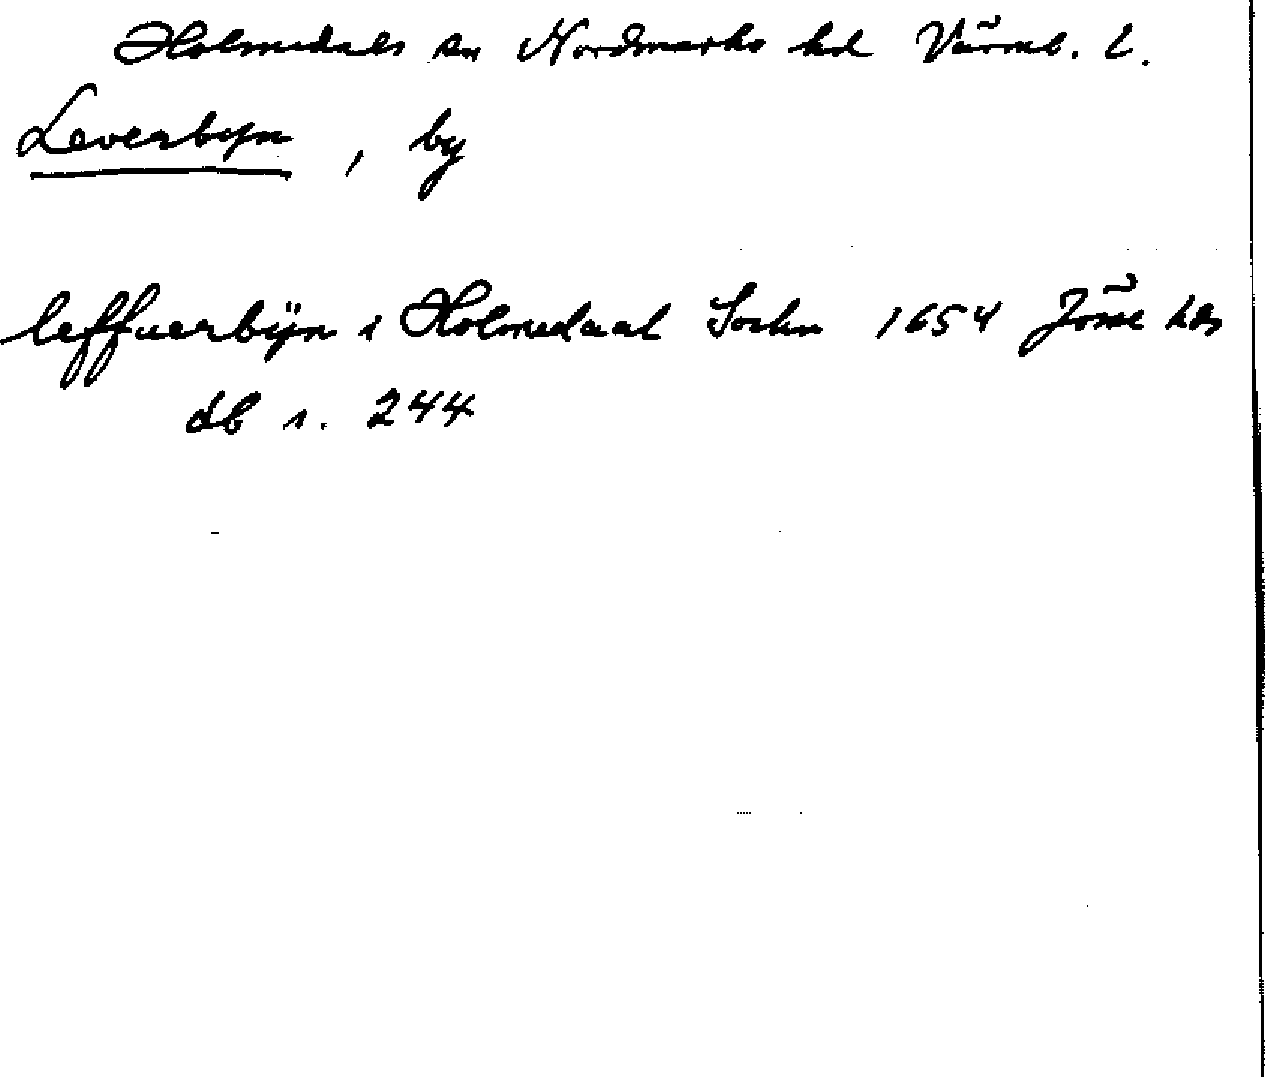 Holmedals sn Nordmarks hd Värml. l.
Leverbyn, by
leffuerbÿn i Holmedaal Sochn 1654 Jösse hds
db s. 244